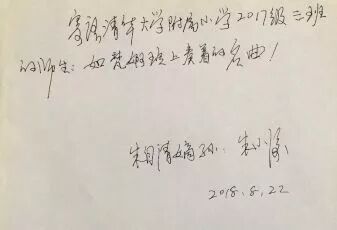 寄语清华大学附属小学2017级三班
的师生：如梵婀玲上奏着的名曲！
朱自清嫡孙：朱小涛
2018.8.22